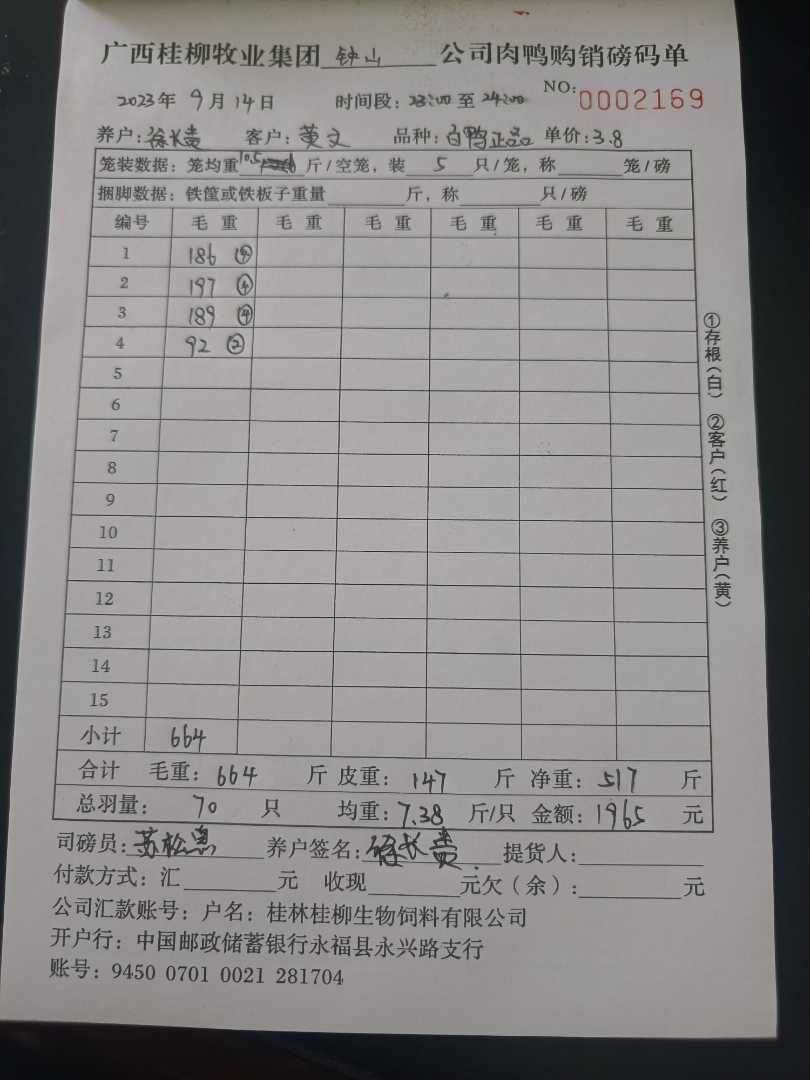 广西桂柳牧业集团 钟山 公司肉鸭购销磅码单
2023年 9月14日 时间段：23:00至24:00 NO：0002169
养户：徐长贵 客户：黄文 品种：白鸭正品 单价：3.8
笼装数据：笼均重 10.5 斤/空笼，装 5 只/笼，称 笼/磅
捆脚数据：铁筐或铁板子重量 斤，称 只/磅
编号 毛重 毛重 毛重 毛重 毛重 毛重
1 186 ④
2 197 ④
3 189 ④
4 92 ②
5
6
7
8
9
10
11
12
13
14
15
小计 664
合计 毛重：664 斤 皮重：147 斤 净重：517 斤
总羽量：70 只 均重：7.38 斤/只 金额：1965 元
司磅员：苏松 养户签名：徐长贵 提货人：
付款方式：汇 元 收现 元欠（余）： 元
公司汇款账号：户名：桂林桂柳生物饲料有限公司
开户行：中国邮政储蓄银行永福县永兴路支行
账号：9450 0701 0021 281704
①存根（白） ②客户（红） ③养户（黄）